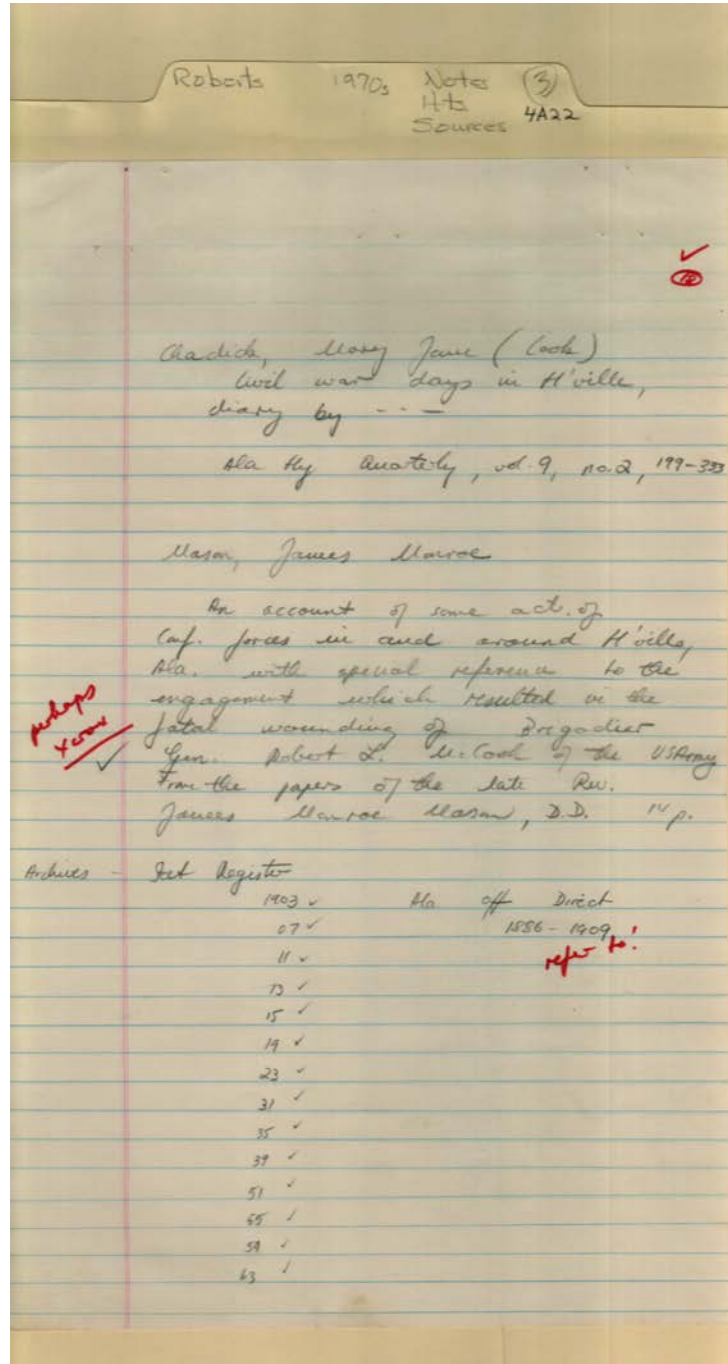 Roberts 1970s Notes (3)
Hts 4A22
Sources
✓
Chadick, Mary Jane (Cook)
Civil war days in H'ville,
diary by - - -
Ala Hy Quaterly, vol. 9, no. 2, 199-333
Mason, James Monroe
An account of some act. of
Conf. forces in and around H'ville,
Ala. with special reference to the
engagement which resulted in the
fatal wounding of Brigadier
Gen. Robert L. McCook of the US Army
From the papers of the late Rev.
James Monroe Mason, D.D. 14 p.
perhaps
xerox
✓
Archives - Register
1903 ✓ Ala off Direct
07 ✓ 1886-1909
11 ✓ refer to!
13 ✓
15 ✓
19 ✓
23 ✓
31 ✓
35 ✓
39 ✓
51 ✓
55 ✓
59 ✓
63 ✓